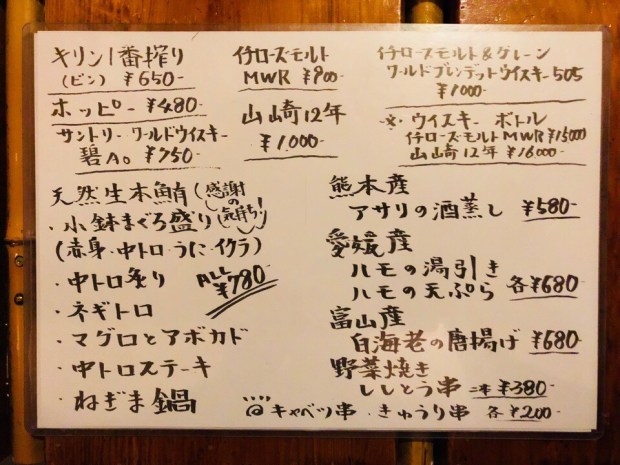 キリン一番搾り
(ビン) ¥650-
ホッピー ¥480-
サントリーワールドウイスキー
碧Ao ¥750-
イチローズモルト
MWR ¥900-
山崎12年
¥1,000-
イチローズモルト&グレーン
ワールドブレンデットウイスキー505
¥1000-
※ウイスキーボトル
イチローズモルトMWR ¥15000
山崎12年 ¥16,000-
天然生本鮪(感謝の気持ち!)
・小鉢まぐろ盛り
(赤身・中トロ・うに・イクラ)
・中トロ炙り
ALL ¥780-
・ネギトロ
・マグロとアボカド
・中トロステーキ
・ねぎま鍋
熊本産
アサリの酒蒸し ¥580-
愛媛産
ハモの湯引き
ハモの天ぷら 各¥680
富山産
白海老の唐揚げ ¥680
野菜焼き
ししとう串 二本 ¥380-
@キャベツ串・きゅうり串 各¥200-